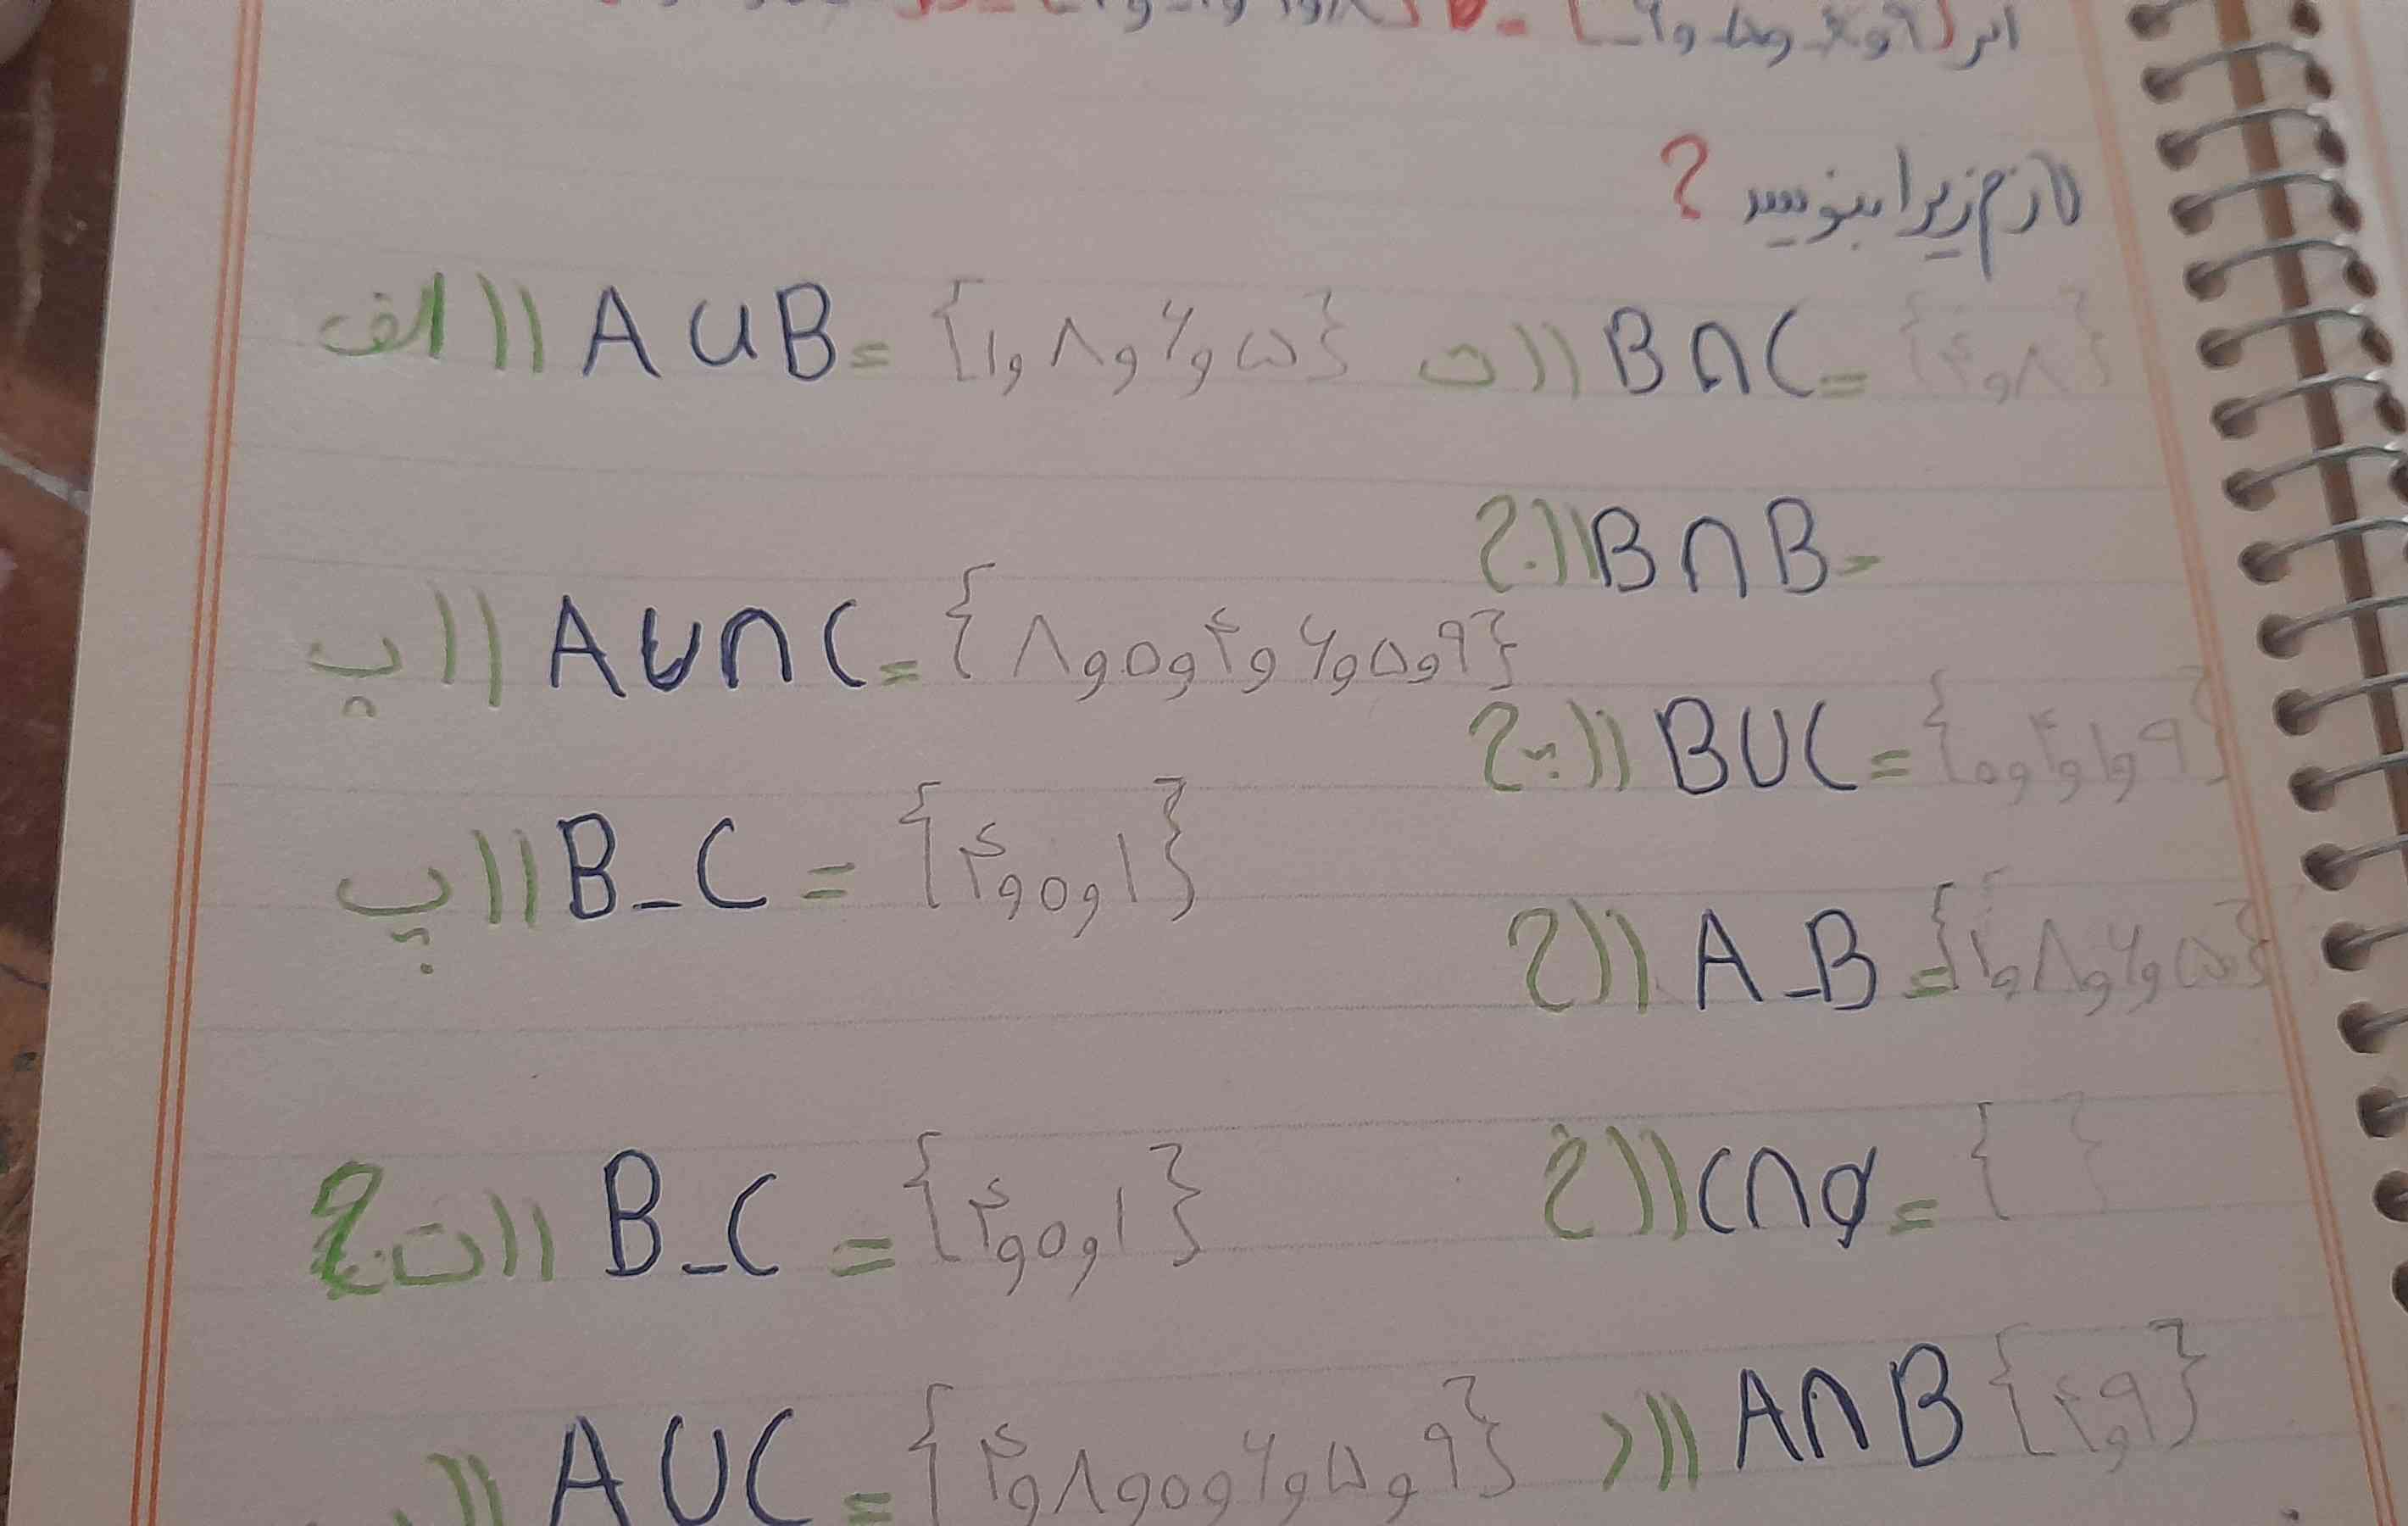 اگر
لازم زیر را بنویسید ?
الف)) A∪B= {۱,۸,۶,۵}
ت)) B∩C= {۴,۸}
ج)) B∩B=
ب)) A∪∩C= {۸,۰,۴,۶,۵,۹}
چ)) B∪C= {۰,۴,۱,۹}
پ)) B_C = {۴,۰,۱}
ح)) A_B = {۱,۸,۶,۵}
ت)) B_C = {۴,۰,۱}
خ)) C∩∅= { }
)) A∪C= {۴,۸,۰,۶,۵,۹}
د)) A∩B {۴,۹}